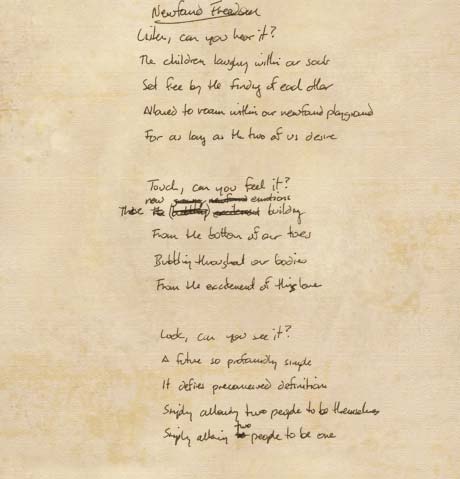 Newfound Freedom
Listen, can you hear it?
The children laughing within our souls
Set free by the finding of each other
Allowed to roam within our newfound playground
For as long as the two of us desire
Touch, can you feel it?
new newfound emotions
These the (bubbling) excitement building
From the bottom of our toes
Bubbling throughout our bodies
From the excitement of this love
Look, can you see it?
A future so profoundly simple
It defies preconceived definition
Simply allowing two people to be themselves
Simply allowing two people to be one